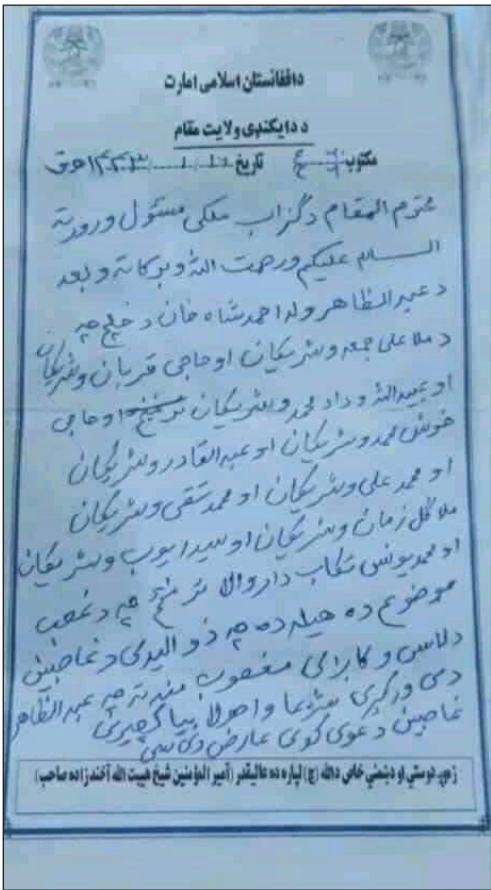 دافغانستان اسلامی امارت
د دایکندی ولایت مقام
مکتوب تاریخ ۱۴۴۳ هـ ق
محترم المقام د گزاب ملکی مسئول ورور ته
السلام علیکم ورحمت الله وبرکاته وبعد
د عبدالظاهر ولد احمد شاه خان د خلج چه
د ملا علی جمعه وشریکان او حاجی قربان وشریکان
او عبیدالله و داد محمد وشریکان او حاجی
خوش محمد وشریکان او عبدالقادر وشریکان
او محمد علی وشریکان او محمد تقی وشریکان
ملا گل زمان وشریکان او سید ایوب وشریکان
او محمد یونس تکاب دار والا تر منځ چه د غصب
موضوع ده هیله ده چه ذو الیدی د غاصبین
د لاسی و کاږی مغصوب منه ته چه عبدالظاهر
دی ورکړی شرعا واصولا بیا کچیری
غاصبین د عوی کوی عارض دی سی
زموږ دوستي او دښمني خاص دالله (ج) لپاره ده عالیقدر (آمیر المؤمنین شیخ هیبت الله آخندزاده صاحب)